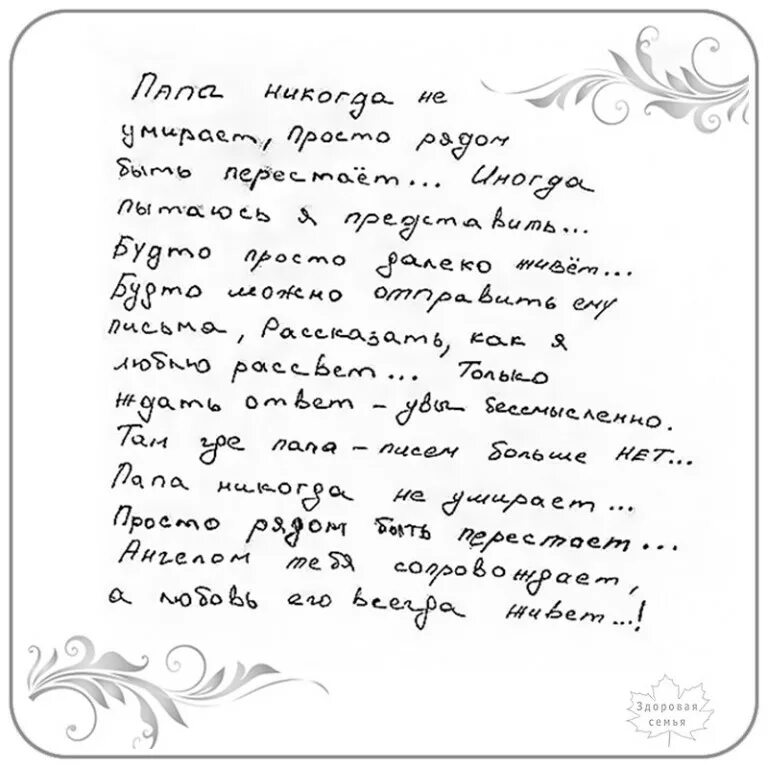 Папа никогда не
умирает, просто рядом
быть перестаёт... Иногда
пытаюсь я представить...
Будто просто далеко живёт...
Будто можно отправить ему
письма, Рассказать, как я
люблю рассвет... Только
ждать ответ - увы бессмысленно.
Там где папа - писем больше НЕТ...
Папа никогда не умирает...
Просто рядом быть перестает...
Ангелом тебя сопровождает,
а любовь его всегда живет...!
Здоровая
семья